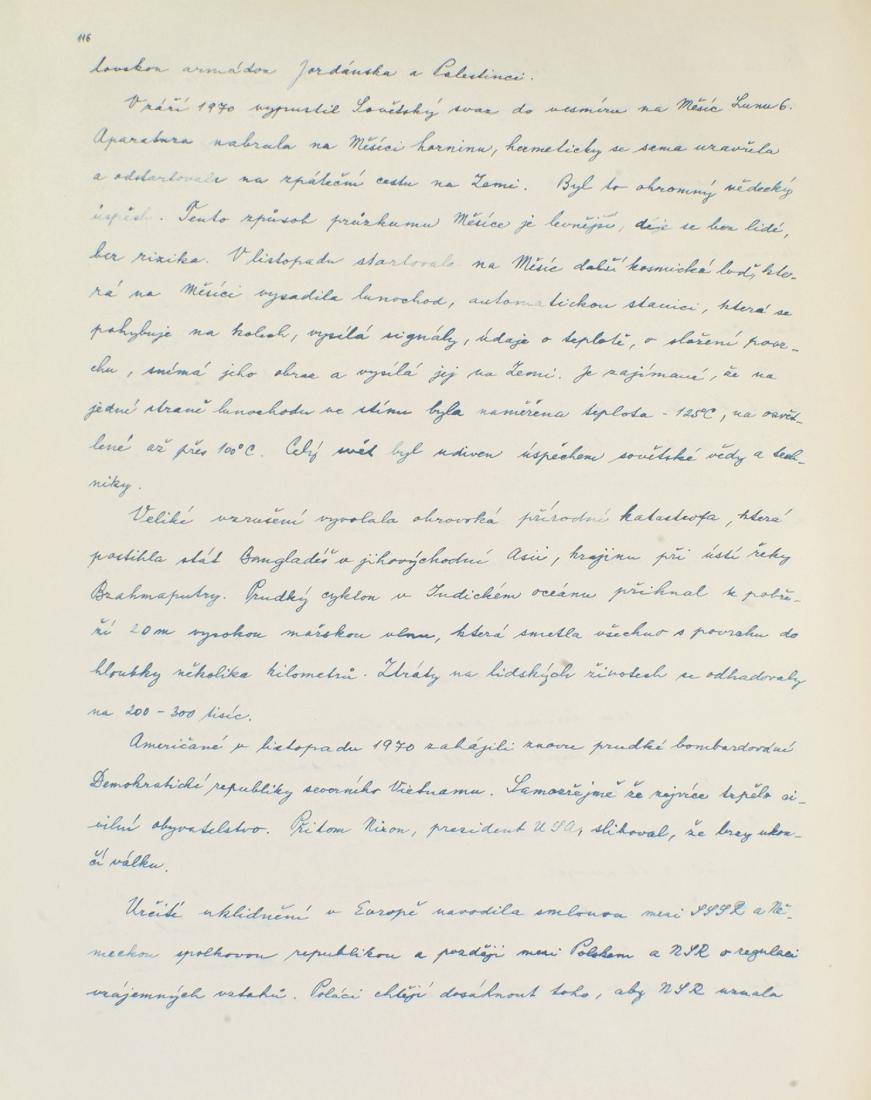 116
lovskou armádou Jordánska a Palestinci.
V září 1970 vypustil Sovětský svaz do vesmíru na Měsíc Lunu 6.
Aparatura nabrala na Měsíci horninu, hermeticky se sama uzavřela
a odstartovala na zpáteční cestu na Zemi. Byl to ohromný vědecký
úspěch. Tento způsob průzkumu Měsíce je levnější, děje se bez lidí,
bez rizika. V listopadu startovala na Měsíc další kosmická loď, kte-
rá na Měsíci vysadila lunochod, automatickou stanici, která se
pohybuje na kolech, vysílá signály, údaje o teplotě, o složení povr-
chu, snímá jeho obraz a vysílá jej na Zemi. Je zajímavé, že na
jedné straně lunochodu ve stínu byla naměřena teplota - 125°C, na osvět-
lené až přes 100°C. Celý svět byl udiven úspěchem sovětské vědy a tech-
niky.
Veliké vzrušení vyvolala obrovská přírodní katastrofa, která
postihla stát Bangladéš v jihovýchodní Asii, krajinu při ústí řeky
Brahmaputry. Prudký cyklon v Indickém oceánu přihnal k pobře-
ží 20 m vysokou mořskou vlnu, která smetla všechno s povrchu do
hloubky několika kilometrů. Ztráty na lidských životech se odhadovaly
na 200 - 300 tisíc.
Američané v listopadu 1970 zahájili znovu prudké bombardování
Demokratické republiky severního Vietnamu. Samozřejmě že nejvíce trpělo ci-
vilní obyvatelstvo. Přitom Nixon, prezident USA, sliboval, že brzy ukon-
čí válku.
Určité uklidnění v Evropě navodila smlouva mezi SSSR a Ně-
meckou spolkovou republikou a později mezi Polskem a NSR o regulaci
vzájemných vztahů. Poláci chtějí dosáhnout toho, aby NSR uznala